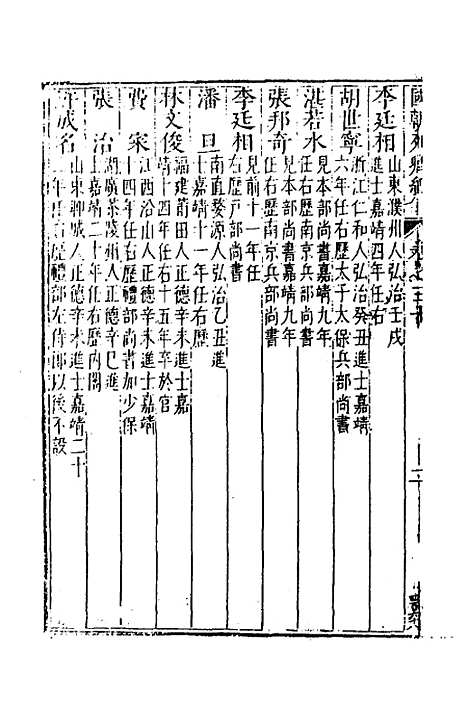 國朝列卿紀
李廷相 山東濮州人弘治壬戌
進士嘉靖四年任右
胡世寧 浙江仁和人弘治癸丑進士嘉靖
六年任右歷太子太保兵部尚書
湛若水 見本部尚書嘉靖九年
任右歷南京兵部尚書
張邦奇 見本部尚書嘉靖九年
任右歷南京兵部尚書
李廷相 見前十一年任
右歷戶部尚書
潘旦 南直婺源人弘治乙丑進
士嘉靖十一年任右歷
林文俊 福建莆田人正德辛未進士嘉
靖十四年任右十五年卒於官
費寀 江西沿山人正德辛未進士嘉靖
十四年任右歷禮部尚書加少保
張治 湖廣茶陵州人正德辛巳進
士嘉靖二十年任右歷內閣
許成名 山東聊城人正德辛未進士嘉靖二十
年任右歷禮部左侍郎以後不設